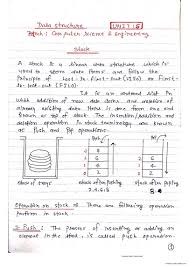 Data structure UNIT-5
Branch: Computer Science & Engineering
Stack
A stack is a linear data structure which is
used to store data items and follow the
Principle of Last-in-first-out (LIFO) or First-
in-last-out (FILO).
It is an ordered list in
which addition of new data items and deletion of
already existing data items is done from one end
known as top of stack. The insertion/addition and
deletion operation in stack terminology are known
as Push and Pop operations.
8
6
4
2
6
4
2
Stack of trays stack after pushing stack after popping
2,4,6,8 8
Operation on stack :- There are following operation
perform in stack
1. Push : The process of inserting or adding an
element in the stack is called push operation
1